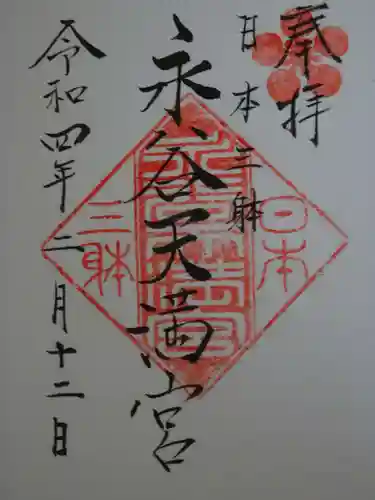 奉拝
日本三躰
永谷天満宮
令和四年二月十二日
日本
三躰